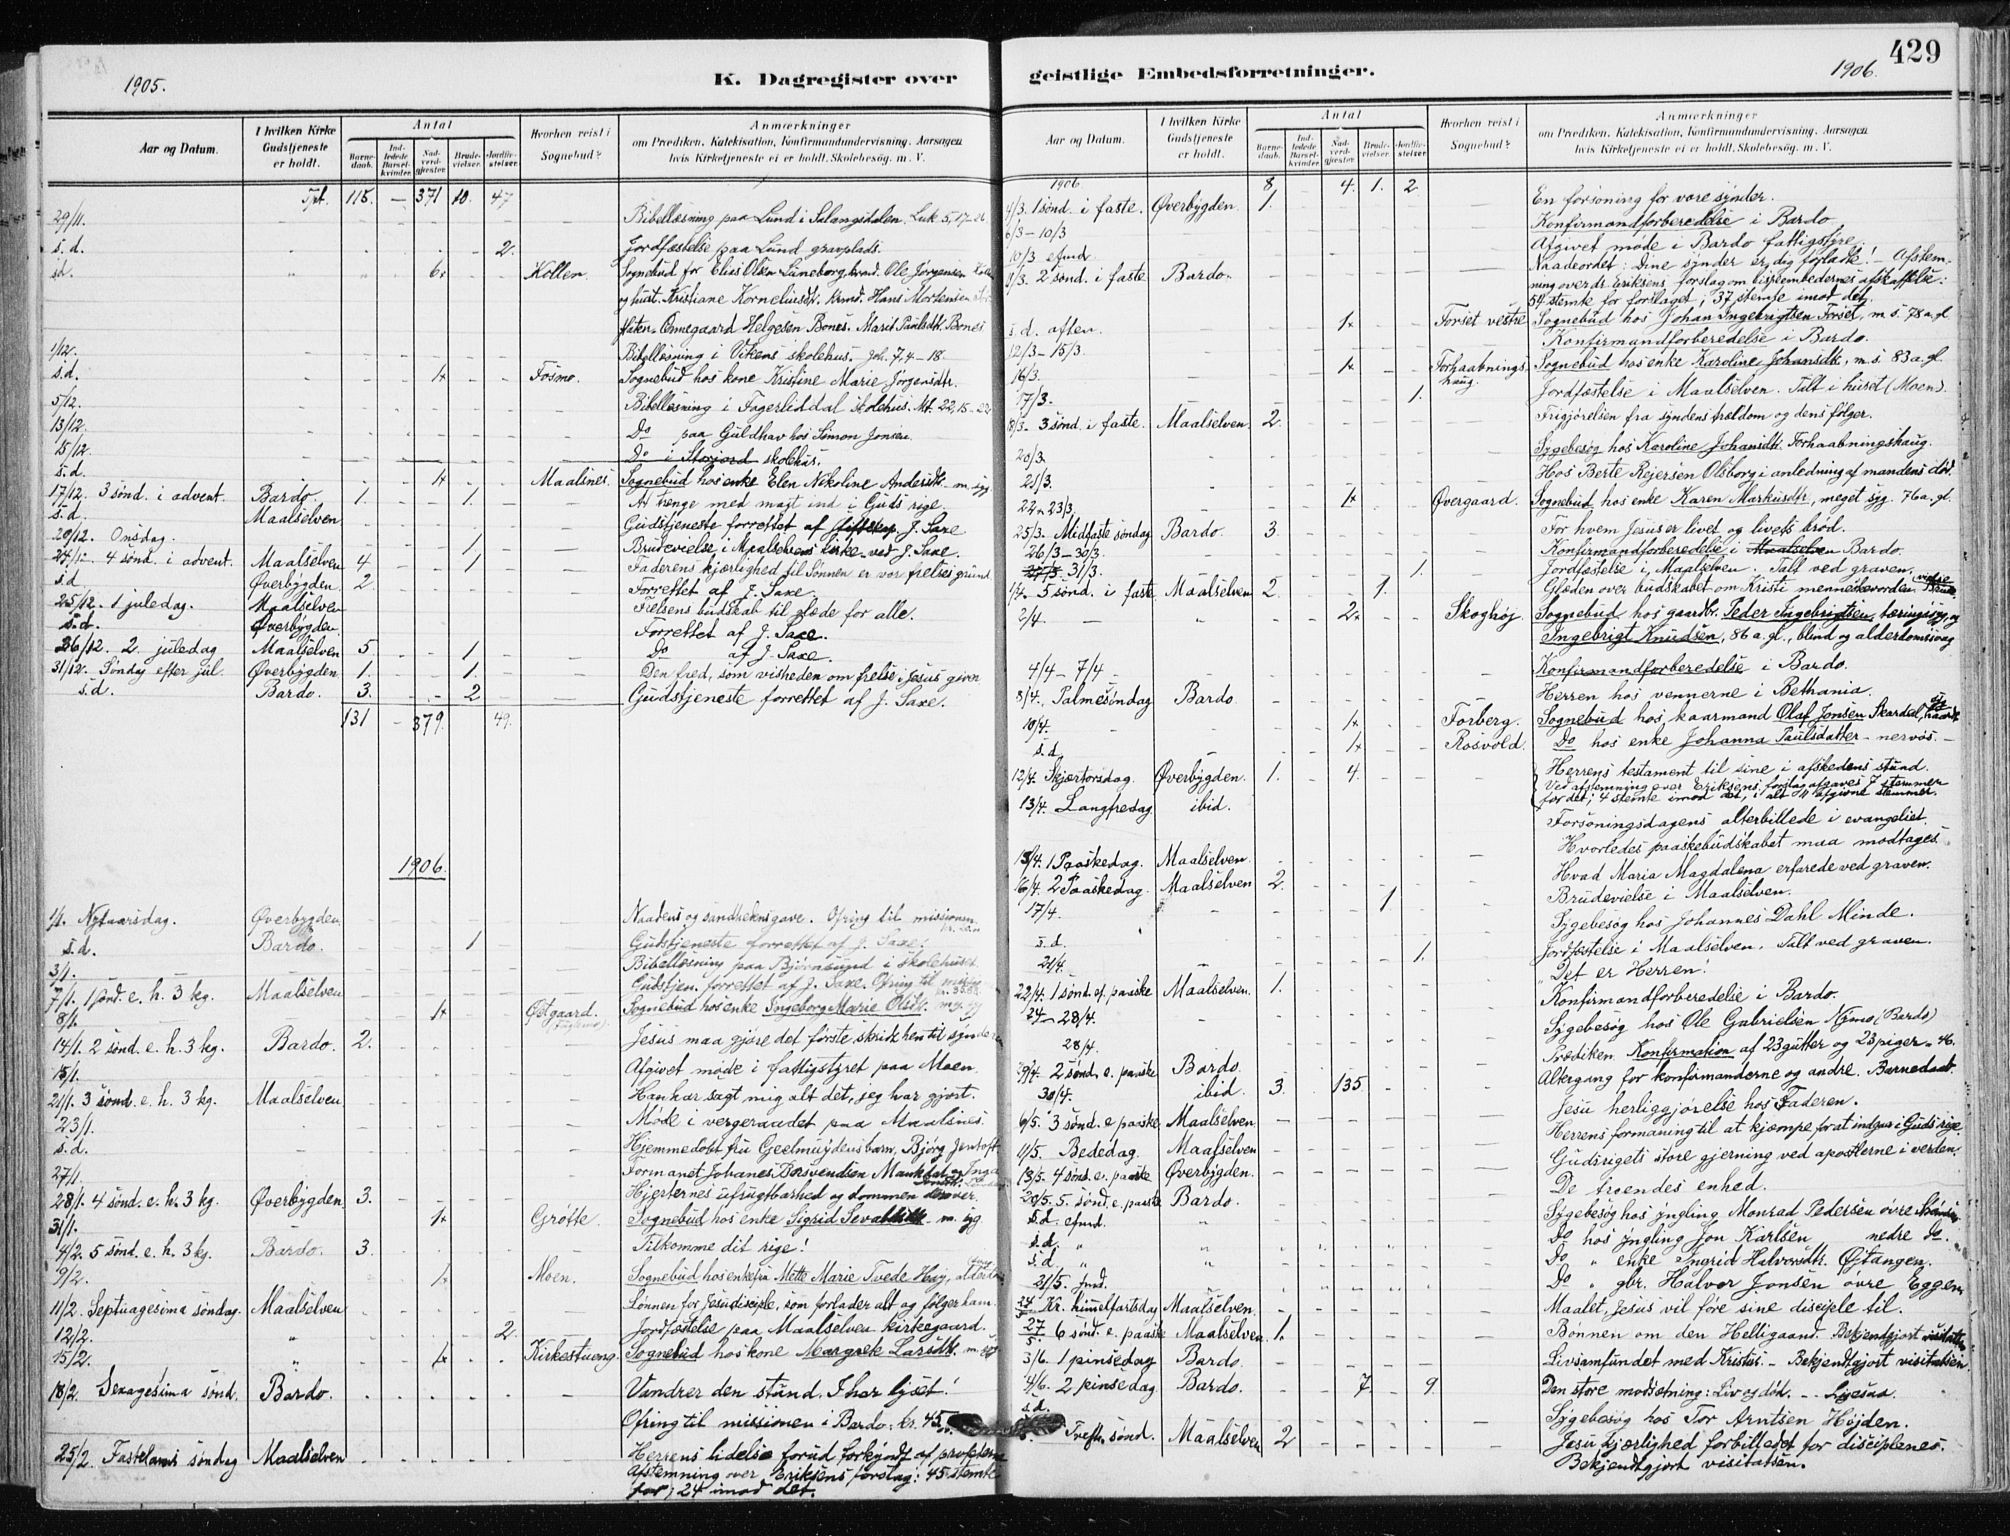 1905.
K. Dagregister over
Aar og Datum.
I hvilken Kirke Gudstjeneste er holdt.
Antal
Barnedaab.
Indledede Barselkvinder.
Nadverdgjester.
Brudevielser.
Jordfæstelser.
Hvorhen reist i Sognebud?
Anmærkninger
om Prædiken, Katekisation, Konfirmandundervisning, Aarsagen
hvis Kirketjeneste ei er holdt, Skolebesøg. m. V.
Tpt. 115. — 371 10. 47
29/11. Bibellæsning paa Lund i Salangsdalen. Luk 5, 17-26
s. d. 2. Jordfæstelse paa Lund gravplads.
sd. 6+ Kollen. Sognebud for Elias Olsen Lüneborg, Ole Jørgensen
og hust. Kristiane Korneliusdt. Hans Mortensen
Annegaard Helgesen Bones. Marit Paulsdt. Bones
1/12. Bibellæsning i Vikens skolehus. Joh. 7, 4-18.
s. d. 1+ Fosmo. Sognebud hos kone Kristine Marie Jørgensdtr.
5/12. Bibellæsning i Fagerliddal skolehus. Mt. 22, 15-22
13/12. Do paa Guldhav hos Simon Jonsen.
15/12. Do i Storjord skolehus.
s. d. 1+ Maalsnes. Sognebud hos enke Elen Nikoline Andersdt. m. syg
17/12. 3 sønd. i advent. Bardo. 1. 1. At trenge med magt ind i Guds rige.
s. d. Maalselven Gudstjeneste forrettet af J. Saxe
20/12. Onsdag. 1 Brudevielse i Maalselvens kirke ved J. Saxe.
24/12. 4 sønd. i advent. Maalselven 4 1 Faderens kjærlighed til Sønnen er vor frelses grund
s. d. Øverbygden. 2. Forrettet af J. Saxe.
25/12. 1 juledag. Maalselven Frelsens budskab til glæde for alle.
s. d. Øverbygden. Forrettet af J. Saxe.
26/12. 2. juledag Maalselven 5 1 Do af J. Saxe.
31/12. Søndag efter jul. Øverbygden 1. 1. Den fred, som visheden om frelse i Jesus giver
s. d. Bardo. 3. 2 Gudstjeneste forrettet af J. Saxe.
131 — 379. 49.
1906.
1/1. Nytaarsdag. Øverbygden. Naadens og sandhedens gave. Ofring til missionen
s. d. Bardo. 1 Gudstjeneste forrettet af J. Saxe.
3/1. Bibellæsning paa Bjørnsund i skolehuset.
7/1. 1 sønd. e. h. 3 kg. Maalselven Gudstjen. forrettet af J. Saxe. Ofring til
8/1. 1+ Østgaard. Sognebud hos enke Ingeborg Marie Olsdt. m. syg
14/1. 2 sønd. e. h. 3 kg. Bardo. 2. Jesus maa gjøre det første skridt hen til synderen
15/1. Afgivet møde i fattigstyret paa Moen.
21/1. 3 sønd. e. h. 3 kg. Maalselven Han har sagt mig alt det, jeg har gjort.
23/1. Møde i vergeraadet paa Maalsnes.
s. d. Hjemmedøbt fru Geelmuydens barn, Bjørg Jentoft
27/1. Formanet Johanes Torsvendsen
28/1. 4 sønd. e. h. 3 kg. Øverbygden 3. Hjerternes ufrugtbarhed og dommen derover.
31/1. 1+ Grøtte. Sognebud hos enke Sigrid m. syg
4/2. 5 sønd. e. h. 3 kg. Bardo. 3. Tilkomme dit rige!
9/2. 1+ Moen. Sognebud hos enkefru Mette Marie Tvede Høy,
11/2. Septuagesima søndag. Maalselven Lønnen for Jesu disciple, som forlader alt og følger ham.
12/2. " 2. Jordfæstelse paa Maalselven kirkegaard.
15/2. " 1+ Kirkestuong. Sognebud hos kone Margrete Larsdt.
18/2. Sexagesima sønd. Bardo. Vandrer den stund. I har lyset!
Ofring til missionen i Bardo: kr. 45
25/2. Fastelavns søndag Maalselven Herrens lidelse forud forkyndt af profeterne
Afstemning over Eriksens forslag: 45 stemte
for, 24 imod det.
429
1906.
geistlige Embedsforretninger.
Aar og Datum.
I hvilken Kirke Gudstjeneste er holdt.
Antal
Barnedaab.
Indledede Barselkvinder.
Nadverdgjester.
Brudevielser.
Jordfæstelser.
Hvorhen reist i Sognebud?
Anmærkninger
om Prædiken, Katekisation, Konfirmandundervisning, Aarsagen
hvis Kirketjeneste ei er holdt, Skolebesøg. m. V.
1906 8 4. 1. 2.
4/3. 1 sønd. i faste. Øverbygden. 1. En forsoning for vore synder.
6/3 – 10/3 Konfirmandforberedelse i Bardo.
10/3 efmd. Afgivet møde i Bardo fattigstyre.
11/3. 2 sønd. i faste Bardo. Naadeordet: Dine synder er dig forladte! – Afstemning over ds. Eriksens forslag om bispembedernes afskaffelse:
54 stemte for forslaget, 37 stemte imod det.
s. d. aften. 1+ Forset vestre Sognebud hos Johan Ingebrigtsen Forset, m. s. 78 a. gl.
12/3 – 15/3. Konfirmandforberedelse i Bardo.
16/3. 1+ Forhaabningshaug. Sognebud hos enke Karoline Johansdt., m. s. 83 a. gl.
17/3. 1. Jordfæstelse i Maalselven. Talt i huset (Moen).
18/3. 3 sønd. i faste. Maalselven. 2. Frigjørelsen fra syndens trældom og dens følger.
20/3. Sygebesøg hos Karoline Johansdt. Forhaabningshaug.
21/3. Hos Berte Rejersen Olsborg i anledning af mandens død.
22 - 23/3. 1+ Øvergaard. Sognebud hos enke Karen Markusdtr., meget syg. 76 a. gl.
25/3. Midfaste søndag Bardo. 3. For hvem Jesus er livet og livets brød.
26/3 – 30/3. Konfirmandforberedelse i Maalselven Bardo.
31/3. 1. Jordfæstelse i Maalselven. Talt ved graven.
1/4. 5 sønd. i faste Maalselven 2. 1. Glæden over budskabet om Kristi menneskevorden.
2/4. — " 2+ Skoghøj. Sognebud hos gaardbr. Peder Ingebrigtsen, tæringssyg, og
Ingebrigt Knudsen, 86 a. gl., blind og alderdomssvag
4/4 – 7/4 Konfirmandforberedelse i Bardo.
8/4. Palmesøndag Bardo. Herren hos vennerne i Bethania.
10/4. 1+ Forberg. Sognebud hos kaarmand Olaf Jonsen Skardal,
s. d. 1+ Rosvold. Do hos enke Johanna Paulsdatter – nervøs. –
12/4. Skjærtorsdag. Øverbygden. 1. 4. Herrens testament til sine i afskedens stund.
Ved afstemning over Eriksens forslag afgaves 7 stemmer
for det; 4 stemte imod det, i alt 11 afgivne stemmer.
13/4. Langfredag ibid. Forsoningsdagens alterbillede i evangeliet.
15/4. 1 Paaskedag. Maalselven. Hvorledes paaskebudskabet maa modtages.
16/4. 2 Paaskedag. Maalselven 2. Hvad Maria Magdalena erfarede ved graven.
17/4. 1 Brudevielse i Maalselven.
s. d. Sygebesøg hos Johannes Dahl Minde.
21/4. 1. Jordfæstelse i Maalselven. Talt ved graven.
22/4. 1 sønd. ef. paaske Maalselven. 1. "Det er Herren!
24 – 28/4. Konfirmandforberedelse i Bardo.
28/4. Sygebesøg hos Ole Gabrielsen Nymo (Bardo)
29/4. 2 sønd. e. paaske Bardo. Prædiken. Konfirmation af 23 gutter og 23 piger = 46.
30/4. ibid. 3. 135 Altergang for konfirmanderne og andre. Barnedaab.
6/5. 3 sønd. e. paaske Maalselven Jesu herliggjørelse hos Faderen.
11/5. Bededag. Maalselven Herrens formaning til at kjæmpe for at indgaa i Guds rige.
13/5. 4 sønd. e. paaske Øverbygden. Gudsrigets store gjerning ved apostlerne i verden.
20/5. 5 sønd. e. paaske Bardo. De troendes enhed.
s. d. efmd. " Sygebesøg hos yngling Monrad Pedersen øvre
s. d. " " Do hos yngling Jon Karlsen nedre do.
s. d. " " Do " enke Ingrid Halvorsdtr. Øjtangen.
21/5. fmd. Do " gbr. Halvor Jonsen øvre Eggen
24/5 Kr. himmelfartsdag Maalselven. Maalet, Jesus vil føre sine disciple til.
27/5. 6 sønd. e. paaske Maalselven 1. Bønnen om den Helligaand. Bekjendtgjort visitatsen
3/6. 1 pinsedag Bardo. Livsamfundet med Kristus. – Bekjendtgjort visitatsen.
4/6. 2 pinsedag Bardo. 7 9 Den store modsætning: Liv og død. –
s. d. Sygebesøg hos Tor Arntsen Højden.
Trefh. sønd. Maalselven 2 Jesu kjærlighed forbilledet for disciplenes.
Bekjendtgjort visitatsen.